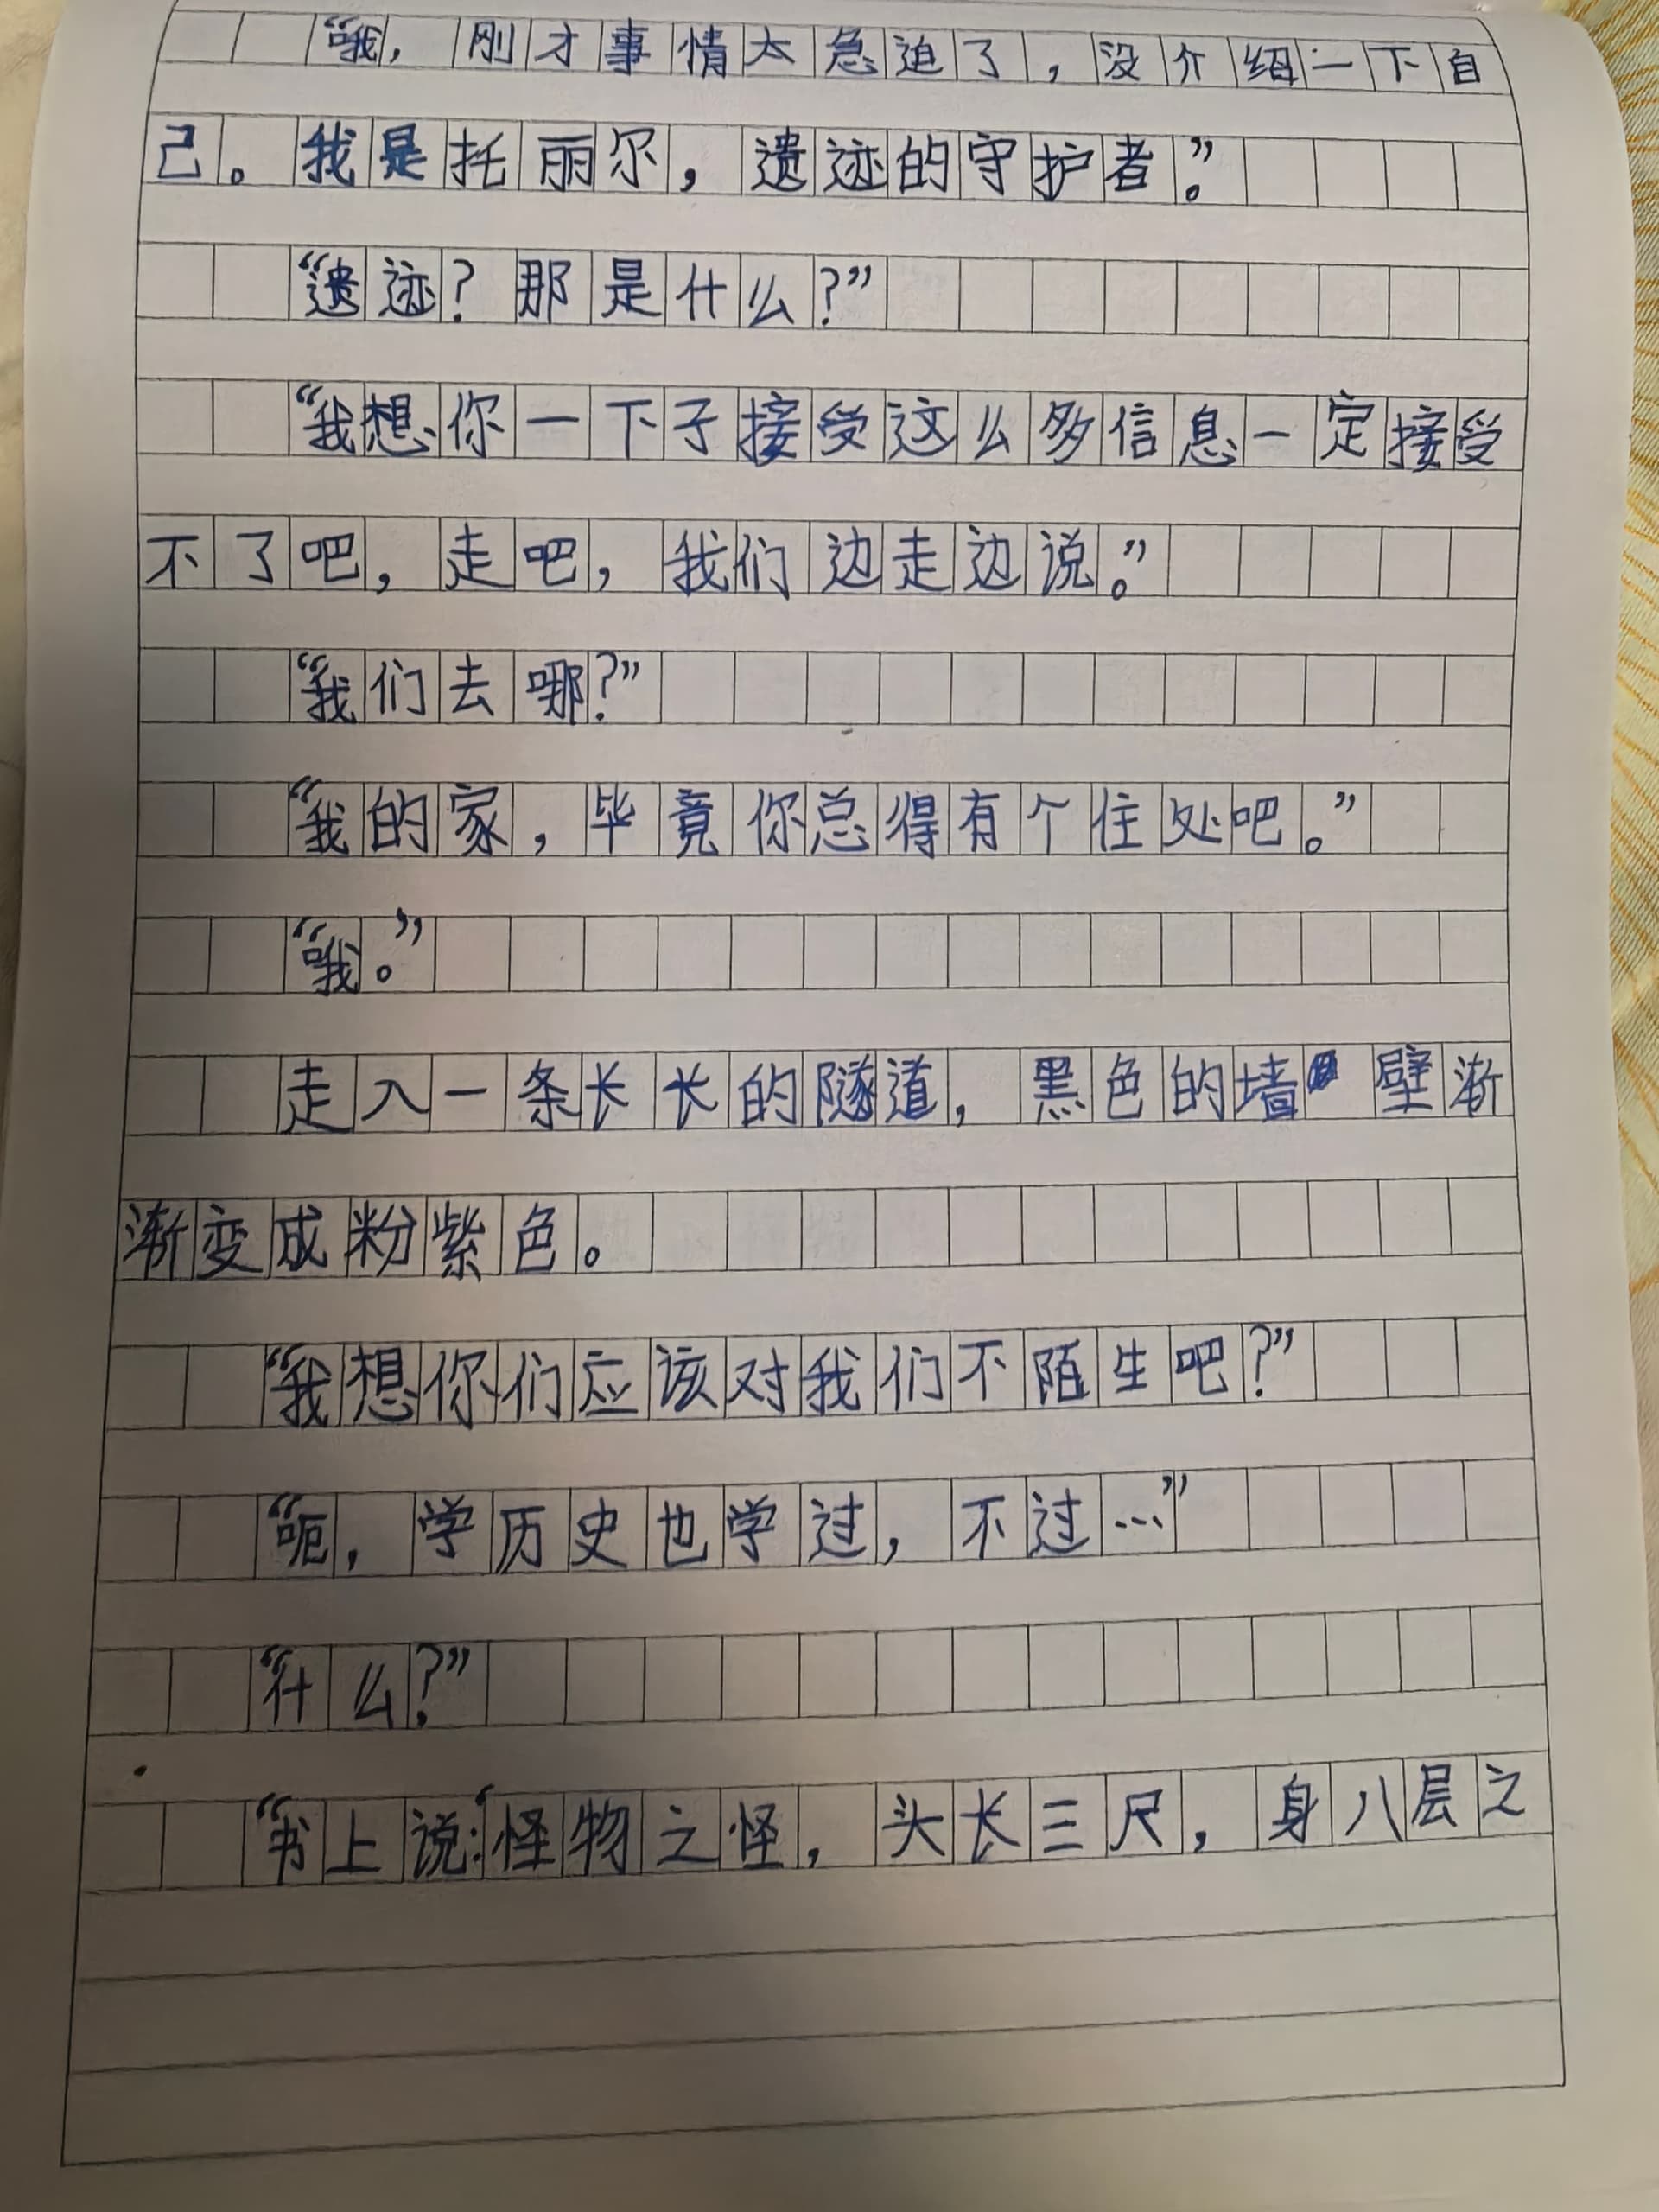 “哦，刚才事情太急迫了，没介绍一下自
己。我是托丽尔，遗迹的守护者。”
“遗迹？那是什么？”
“我想你一下子接受这么多信息一定接受
不了吧，走吧，我们边走边说。”
“我们去哪？”
“我的家，毕竟你总得有个住处吧。”
“哦。”
走入一条长长的隧道，黑色的墙壁渐
渐变成粉紫色。
“我想你们应该对我们不陌生吧？”
“呃，学历史也学过，不过…”
“什么？”
“书上说：‘怪物之怪，头长三尺，身八层之